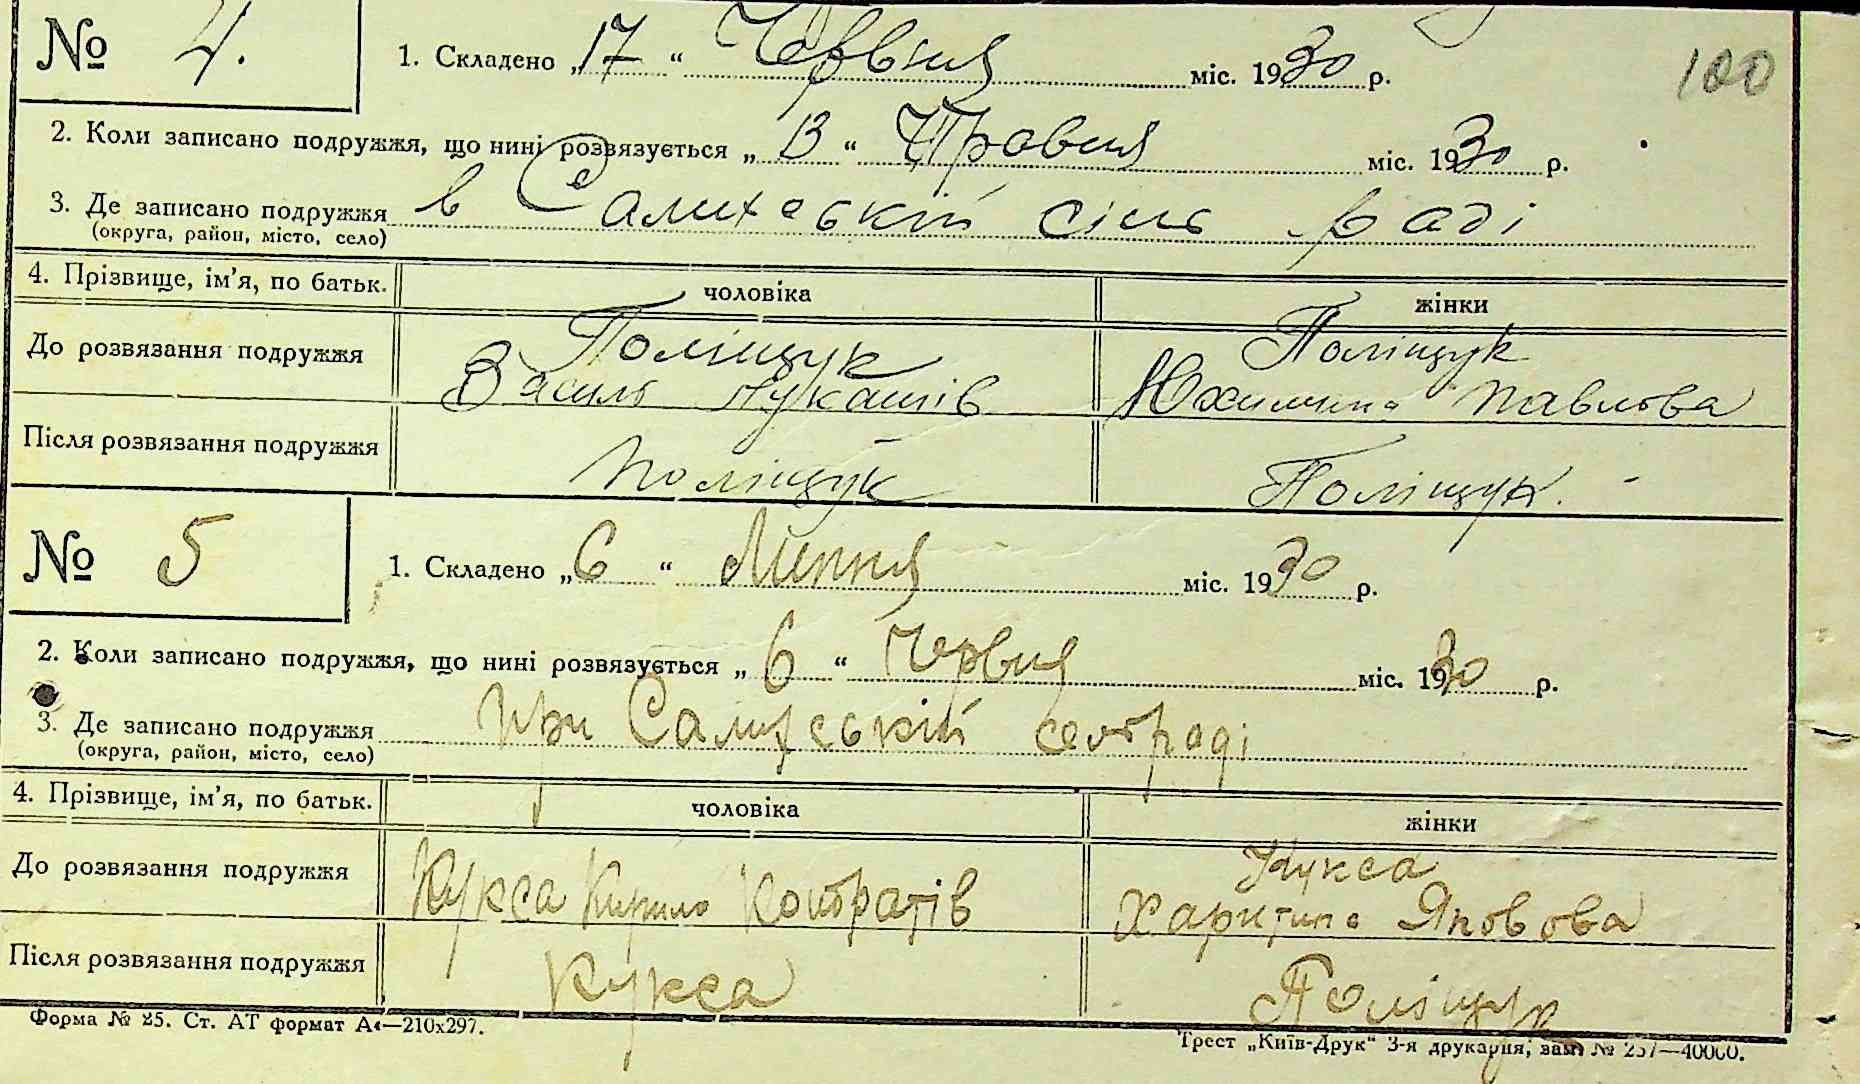 № 4.
100
1. Складено „17“ Червня міс. 1930 р.
2. Коли записано подружжя, що нині розвязується „13“ Травня міс. 1930 р.
3. Де записано подружжя в Салихський сіль раді
(округа, район, місто, село)
4. Прізвище, ім'я, по батьк. чоловіка жінки
До розвязання подружжя Поліщук Василь Лукашів Поліщук Юхимина Павлова
Після розвязання подружжя Поліщук Поліщук.
№ 5
1. Складено „6“ Липня міс. 1930 р.
2. Коли записано подружжя, що нині розвязується „6“ Червня міс. 1930 р.
3. Де записано подружжя При сельраді
(округа, район, місто, село)
4. Прізвище, ім'я, по батьк. чоловіка жінки
До розвязання подружжя Кукса Кирило Кондратів Кукса Харитина Яковова
Після розвязання подружжя Кукса Поліщук
Форма № 25. Ст. АТ формат А4—210х297.
Трест „Київ-Друк“ 3-я друкарня, зам. № 257—40000.